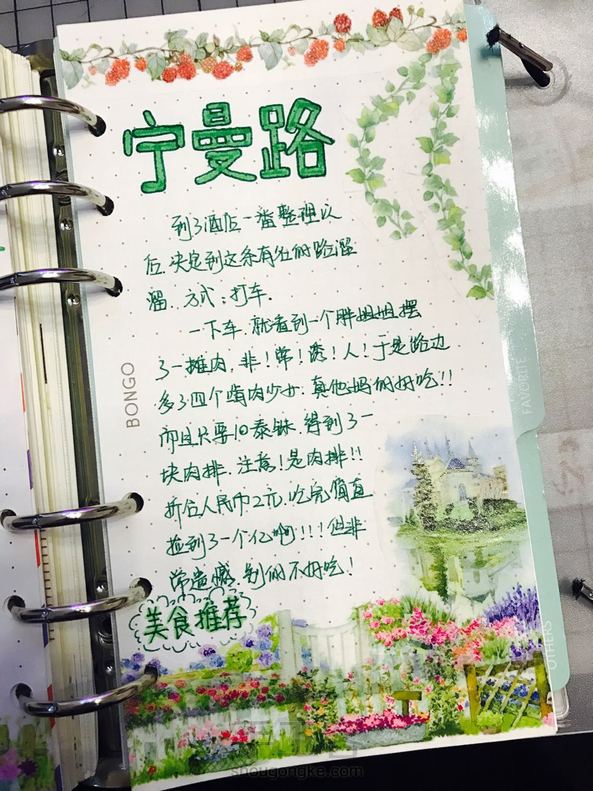 宁曼路
到了酒店一番整理以
后,决定到这条有名的路溜
溜.方式:打车.
一下车.就看到一个胖姐姐摆
了一摊肉.非!常!诱!人!于是路边
多了四个啃肉少女.真他妈的好吃!!
而且只要10泰铢.得到了一
块肉排.注意!是肉排!!
折合人民币2元.吃完简直
捡到了一个亿啊!!!但非
常遗憾.别的不好吃!
美食推荐
BONGO
FAVORITE
OTHERS
shougongke.com